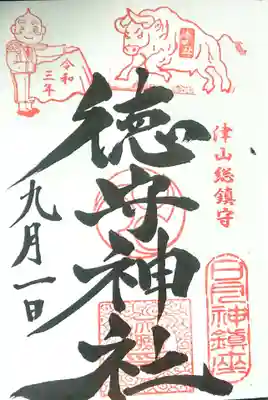 令和
三年
津山総鎮守
徳守神社
九月一日
神鎮座